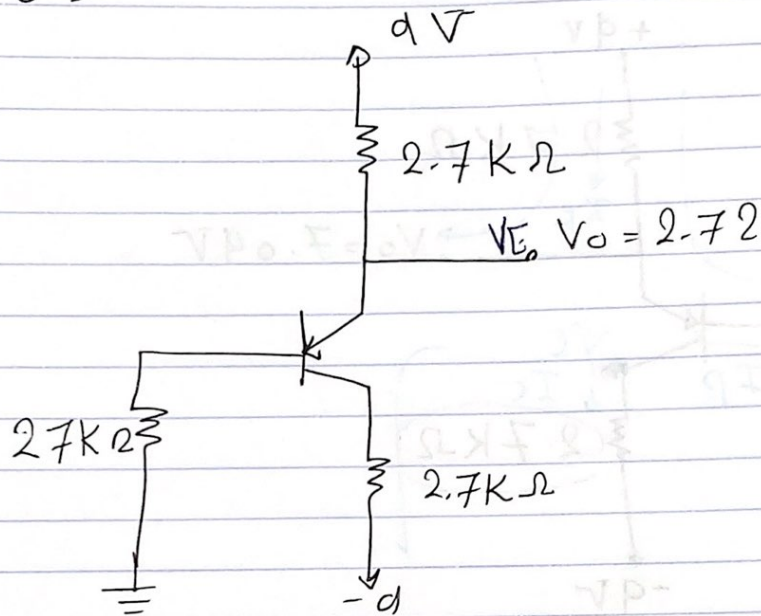 9V
2.7KΩ
VE. Vo = 2.72
27KΩ
2.7KΩ
-9